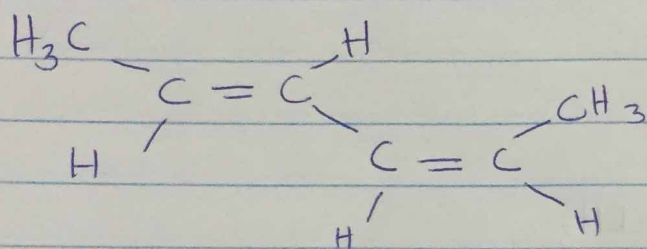 H₃C H
C = C CH₃
H C = C
H H